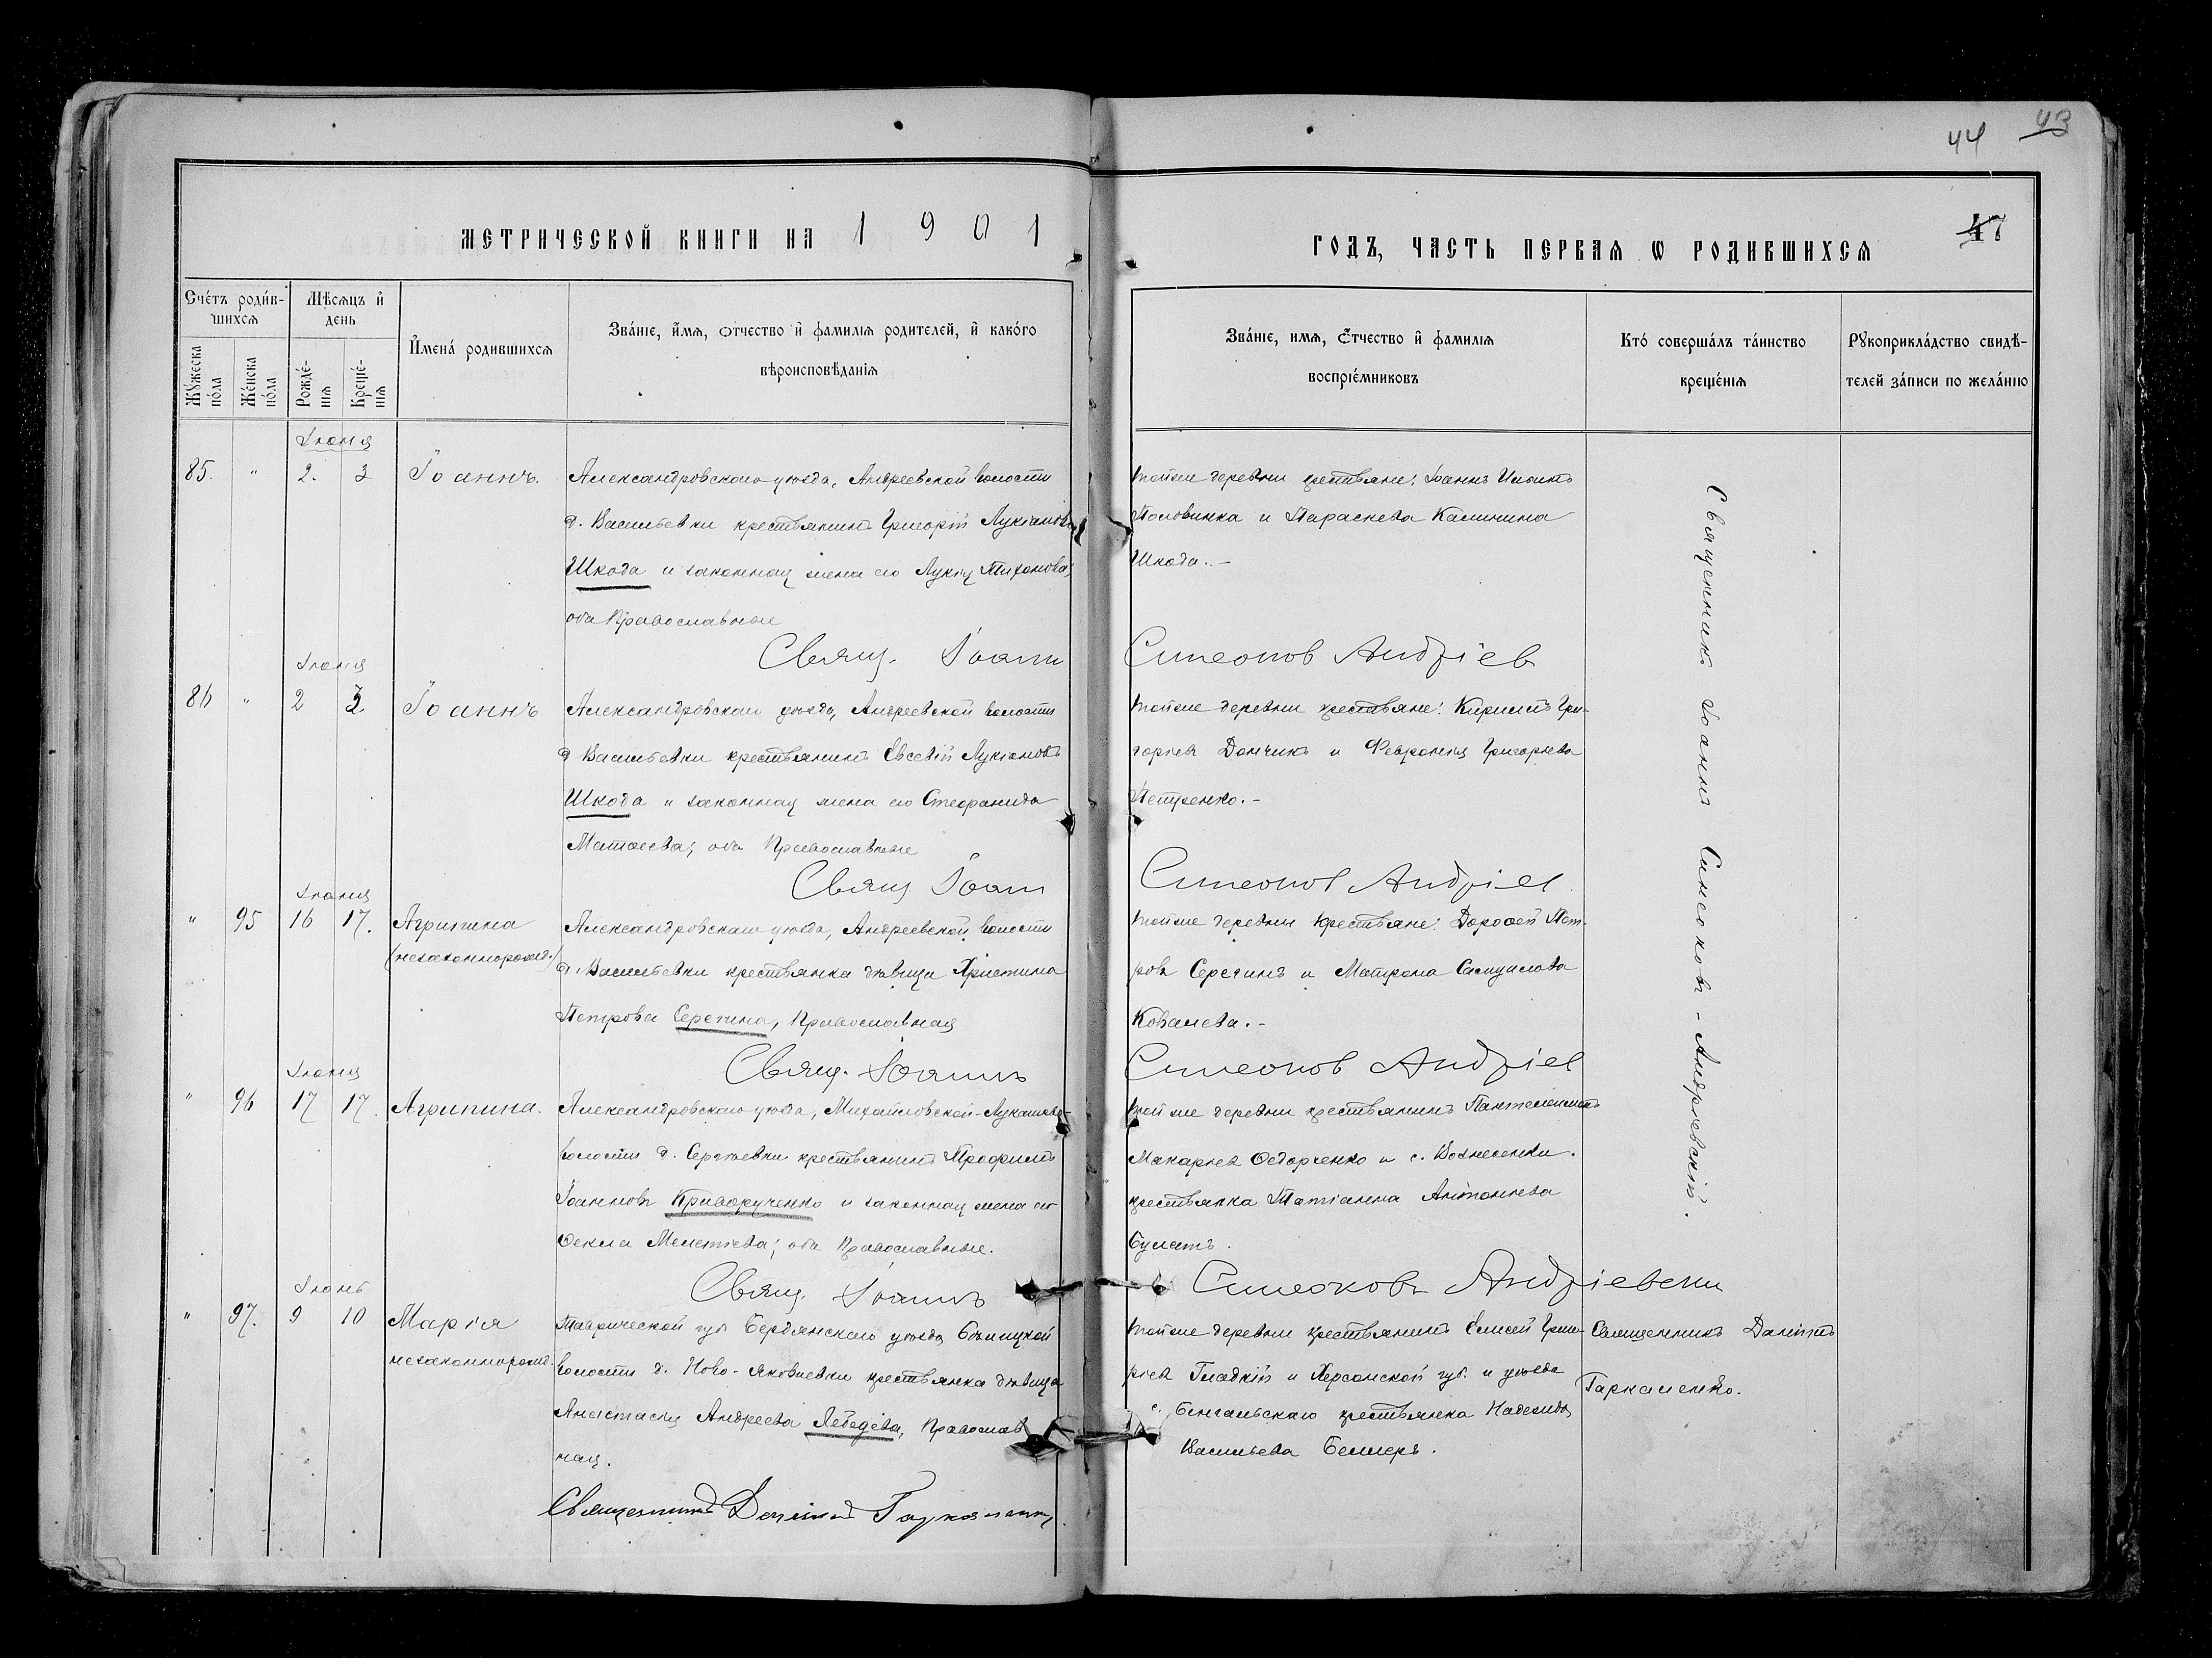 44 43
МЕТРИЧЕСКОЙ КНИГИ НА 1901
ГОДЪ, ЧАСТЬ ПЕРВАЯ Ѡ РОДИВШИХСЯ
47
Счетъ родив-
шихся
Мѣсяцъ и
день
Мужеска
пола
Женска
пола
Рожде-
нія
Креще-
нія
Имена родившихся
Званіе, имя, отчество и фамилія родителей, и какого
вѣроисповѣданія
Званіе, имя, отчество и фамилія
воспріемниковъ
Кто совершалъ таинство
крещенія
Рукоприкладство свидѣ-
телей записи по желанію
Іюня
85. " 2. 3 Іоаннъ.
Александровскаго уѣзда, Андреевской волости
д. Васильевки крестьянинъ Григорій Лукіановъ
Шкода и законная жена его Лукія Тихонова,
оба Православные
тойже деревни крестьяне: Іоаннъ
Половинка и Параскева Калинина
Шкода.-
Свящ. Іоанн Симеонов Андріев
Іюня
86 " 2 3 Іоаннъ
Александровскаго уѣзда, Андреевской волости
д Васильевки крестьянинъ Евсевій Лукіановъ
Шкода и законная жена его Стефанида
Матѳеева; оба Православные
тойже деревни крестьяне: Кириллъ Гри-
горьевъ Дончикъ и Февронія Григорьева
Петренко.-
Свящ Іоан Симеонов Андріев
Іюня
" 95 16 17. Агрипина
(незаконнорожд.)
Александровскаго уѣзда, Андреевской волости
д. Васильевки крестьянка дѣвица Христина
Петрова Серегина, Православная
тойже деревни крестьяне: Дороѳей Пет-
ровъ Серегинъ и Матрона Самуилова
Ковалева.-
Свящ. Іоаннъ Симеонов Андріев
Іюня
" 96 17 17. Агрипина.
Александровскаго уѣзда, Михайловской-Лукашево-
волости д. Сергѣевки крестьянинъ Трофимъ
Іоанновъ Криворученко и законная жена его
Ѳекла Мелетіева; оба Православные.
тойже деревни крестьянинъ Пантелеимонъ
Макарьевъ Ѳедорченко и с. Вознесенки.
крестьянка Татіанна Антоніева
Булатъ.
Свящ. Іоаннъ Симеоновъ Андріевски
Священникъ Іоаннъ Симеоновъ-Андріевскій.
Іюнь
" 97. 9 10 Марія
незаконнорожд.
Таврической губ Бердянскаго уѣзда
волости д. Ново-Яковлевки крестьянка дѣвица
Анастасія Андреева Лебедева, Православ
ная.
тойже деревни крестьянинъ Елисей Григо-
рьев Гладкій и Херсонской губ. и уѣзда
с. крестьянка Надежда
Васильева
Священникъ Даніилъ
Гаркаленко.
Священникъ Даніилъ Гаркаленко